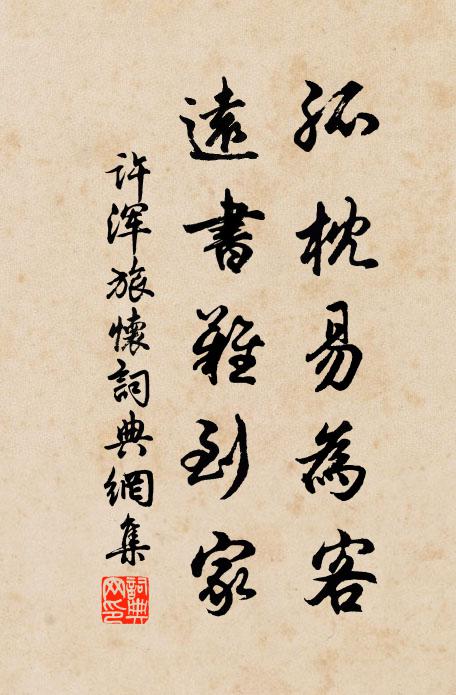 孤枕易為客
遠書難到家
许浑旅懷詞典網集
詞典网印